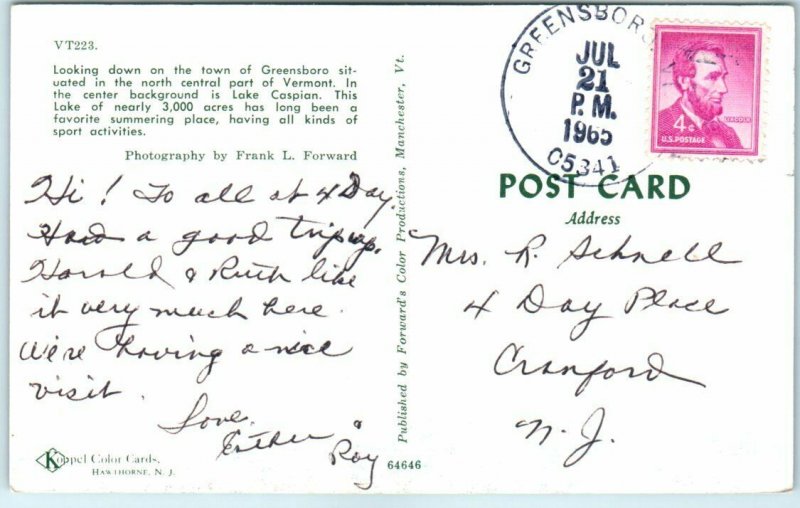 VT223.
Looking down on the town of Greensboro sit-
uated in the north central part of Vermont. In
the center background is Lake Caspian. This
Lake of nearly 3,000 acres has long been a
favorite summering place, having all kinds of
sport activities.
Photography by Frank L. Forward
Hi! To all at 4 Day.
Had a good trip up.
Harold & Ruth like
it very much here.
We're having a nice
visit.
Love,
Esther &
Roy
Koppel Color Cards.
HAWTHORNE, N. J.
64646
Published by Forward's Color Productions, Manchester, Vt.
GREENSBORO
JUL
21
P. M.
1965
05341
4¢
LINCOLN
U.S. POSTAGE
POST CARD
Address
Mrs. R. Schnell
4 Day Place
Cranford
N. J.